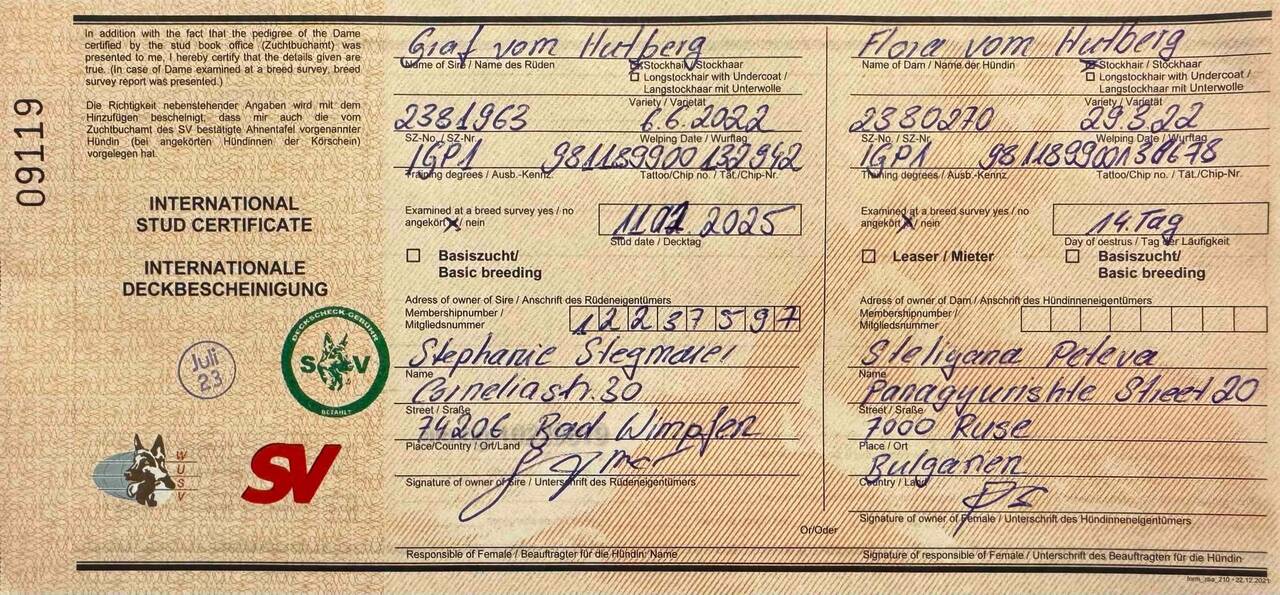 09119
In addition with the fact that the pedigree of the Dame
certified by the stud book office (Zuchtbuchamt) was
presented to me, I hereby certify that the details given are
true. (In case of Dame examined at a breed survey, breed
survey report was presented.)
Die Richtigkeit nebenstehender Angaben wird mit dem
Hinzufügen bescheinigt, dass mir auch die vom
Zuchtbuchamt des SV bestätigte Ahnentafel vorgenannter
Hündin (bei angekörten Hündinnen der Körschein)
vorgelegen hat.
INTERNATIONAL
STUD CERTIFICATE
INTERNATIONALE
DECKBESCHEINIGUNG
Juli
23
DECKSCHECK-GEBÜHR
SV
BEZAHLT
WUSV
SV
Graf vom Hutberg
Name of Sire / Name des Rüden
Stockhair / Stockhaar
Longstockhair with Undercoat /
Langstockhaar mit Unterwolle
Variety / Varietät
2381963 6.6.2022
SZ-No. / SZ-Nr. Welping Date / Wurftag
IGP1 981189900132942
Training degrees / Ausb.-Kennz. Tattoo/Chip no. / Tät./Chip-Nr.
Examined at a breed survey yes / no
angekört x / nein
2025
Stud date / Decktag
Basiszucht/
Basic breeding
Adress of owner of Sire / Anschrift des Rüdeneigentümers
Membershipnumber /
Mitgliedsnummer
12237597
Stephanie Stegmaier
Name
Corneliastr. 30
Street / Sraße
74206 Bad Wimpfen
Place/Country / Ort/Land
Signature of owner of Sire / Unterschrift des Rüdeneigentümers
Or/Oder
Responsible of Female / Beauftragter für die Hündin: Name
Flora vom Hutberg
Name of Dam / Name der Hündin
Stockhair / Stockhaar
Longstockhair with Undercoat /
Langstockhaar mit Unterwolle
Variety / Varietät
2380270 29.3.22
SZ-No. / SZ-Nr. Welping Date / Wurftag
IGP1
Training degrees / Ausb.-Kennz. Tattoo/Chip no. / Tät./Chip-Nr.
Examined at a breed survey yes / no
angekört x / nein
14. Tag
Day of oestrus / Tag der Läufigkeit
Leaser / Mieter
Basiszucht/
Basic breeding
Adress of owner of Dam / Anschrift des Hündinneneigentümers
Membershipnumber /
Mitgliedsnummer
Steliyana Peteva
Name
Panagyurishte Street 20
Street / Sraße
7000 Ruse
Place / Ort
Bulgarien
Country / Land
Signature of owner of Female / Unterschrift des Hündinneneigentümers
Signature of responsible of Female / Unterschrift des Beauftragten für die Hündin
form_rea_210 - 22.12.2021